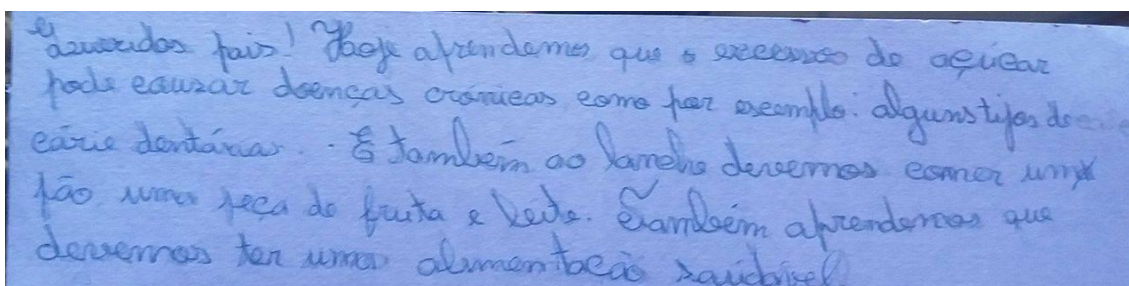 Queridos pais! Hoje aprendemos que o excesso de açúcar
pode cauzar doenças crónicas como por exemplo: alguns tipos de
cárie dentárias. . E também ao lanche devemos comer um
pão uma peça de fruta e leite. Também aprendemos que
devemos ter uma alimentação saudável